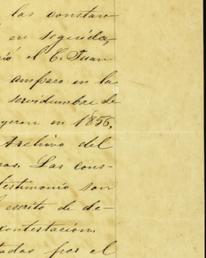 las constan
en seguida,
ió el C. Juan
amparo en la
servidumbre de
yeron en 1856.
Archivo del
as. Las cons-
testimonio son
escrito de de-
contestacion.
tadas por el